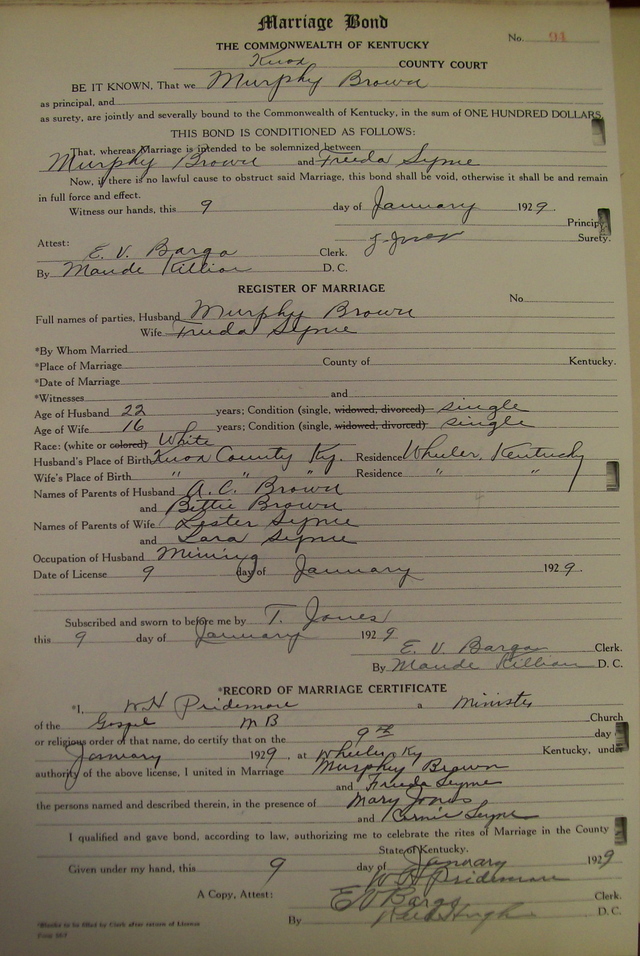 Marriage Bond
No. 91
THE COMMONWEALTH OF KENTUCKY
Knox COUNTY COURT
BE IT KNOWN, That we Murphy Brown
as principal, and
as surety, are jointly and severally bound to the Commonwealth of Kentucky, in the sum of ONE HUNDRED DOLLARS
THIS BOND IS CONDITIONED AS FOLLOWS:
That, whereas Marriage is intended to be solemnized between
Murphy Brown and Freeda
Now, if there is no lawful cause to obstruct said Marriage, this bond shall be void, otherwise it shall be and remain
in full force and effect.
Witness our hands, this 9 day of January 1929.
Princip
Surety.
Attest: E. V. Bargo Clerk.
By Maude Killion D. C.
REGISTER OF MARRIAGE
No.
Full names of parties, Husband Murphy Brown
Wife Freeda
*By Whom Married
*Place of Marriage County of Kentucky.
*Date of Marriage
*Witnesses and
Age of Husband 22 years; Condition (single, widowed, divorced) single
Age of Wife 16 years; Condition (single, widowed, divorced) single
Race: (white or colored) White
Husband's Place of Birth Knox County Ky. Residence Wheeler, Kentucky
Wife's Place of Birth " " " Residence " "
Names of Parents of Husband A. C. Brown
and Bettie Brown
Names of Parents of Wife Lester
and
Occupation of Husband Mining
Date of License 9 day of January 1929.
Subscribed and sworn to before me by T. Jones
this 9 day of January 1929
E. V. Bargo Clerk.
By Maude Killion D. C.
*RECORD OF MARRIAGE CERTIFICATE
*I, W H Pridemore a Minister
of the Gospel M B Church
or religious order of that name, do certify that on the 9th day
January 1929, at Wheeler Ky Kentucky, unde
authority of the above license, I united in Marriage Murphy Brown
and Freeda
the persons named and described therein, in the presence of Mary Jones
and
I qualified and gave bond, according to law, authorizing me to celebrate the rites of Marriage in the County
State of Kentucky.
Given under my hand, this 9 day of January 1929
W H Pridemore
A Copy, Attest: E V Bargo Clerk.
By D. C.
*Blanks to be filled by Clerk after return of License